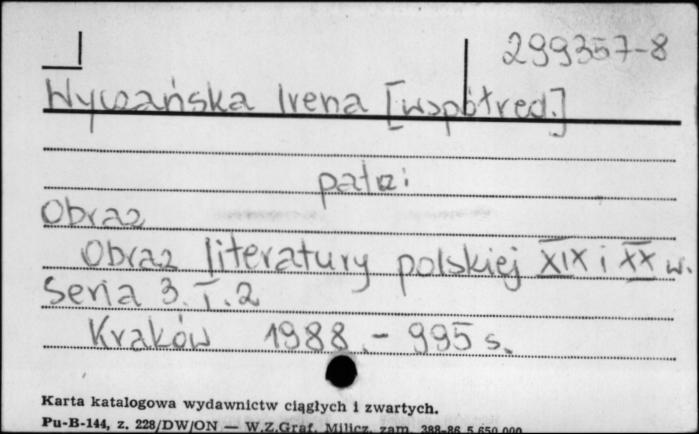 299357-8
Wyczańska Irena [współred.]
patrz:
Obraz
Obraz literatury polskiej XIX i XX w.
Seria 3. T. 2
Kraków 1988. - 995 s.
Karta katalogowa wydawnictw ciągłych i zwartych.
Pu-B-144, z. 228/DW/ON — W.Z.Graf. Milicz, zam. 388-86 5.650.000